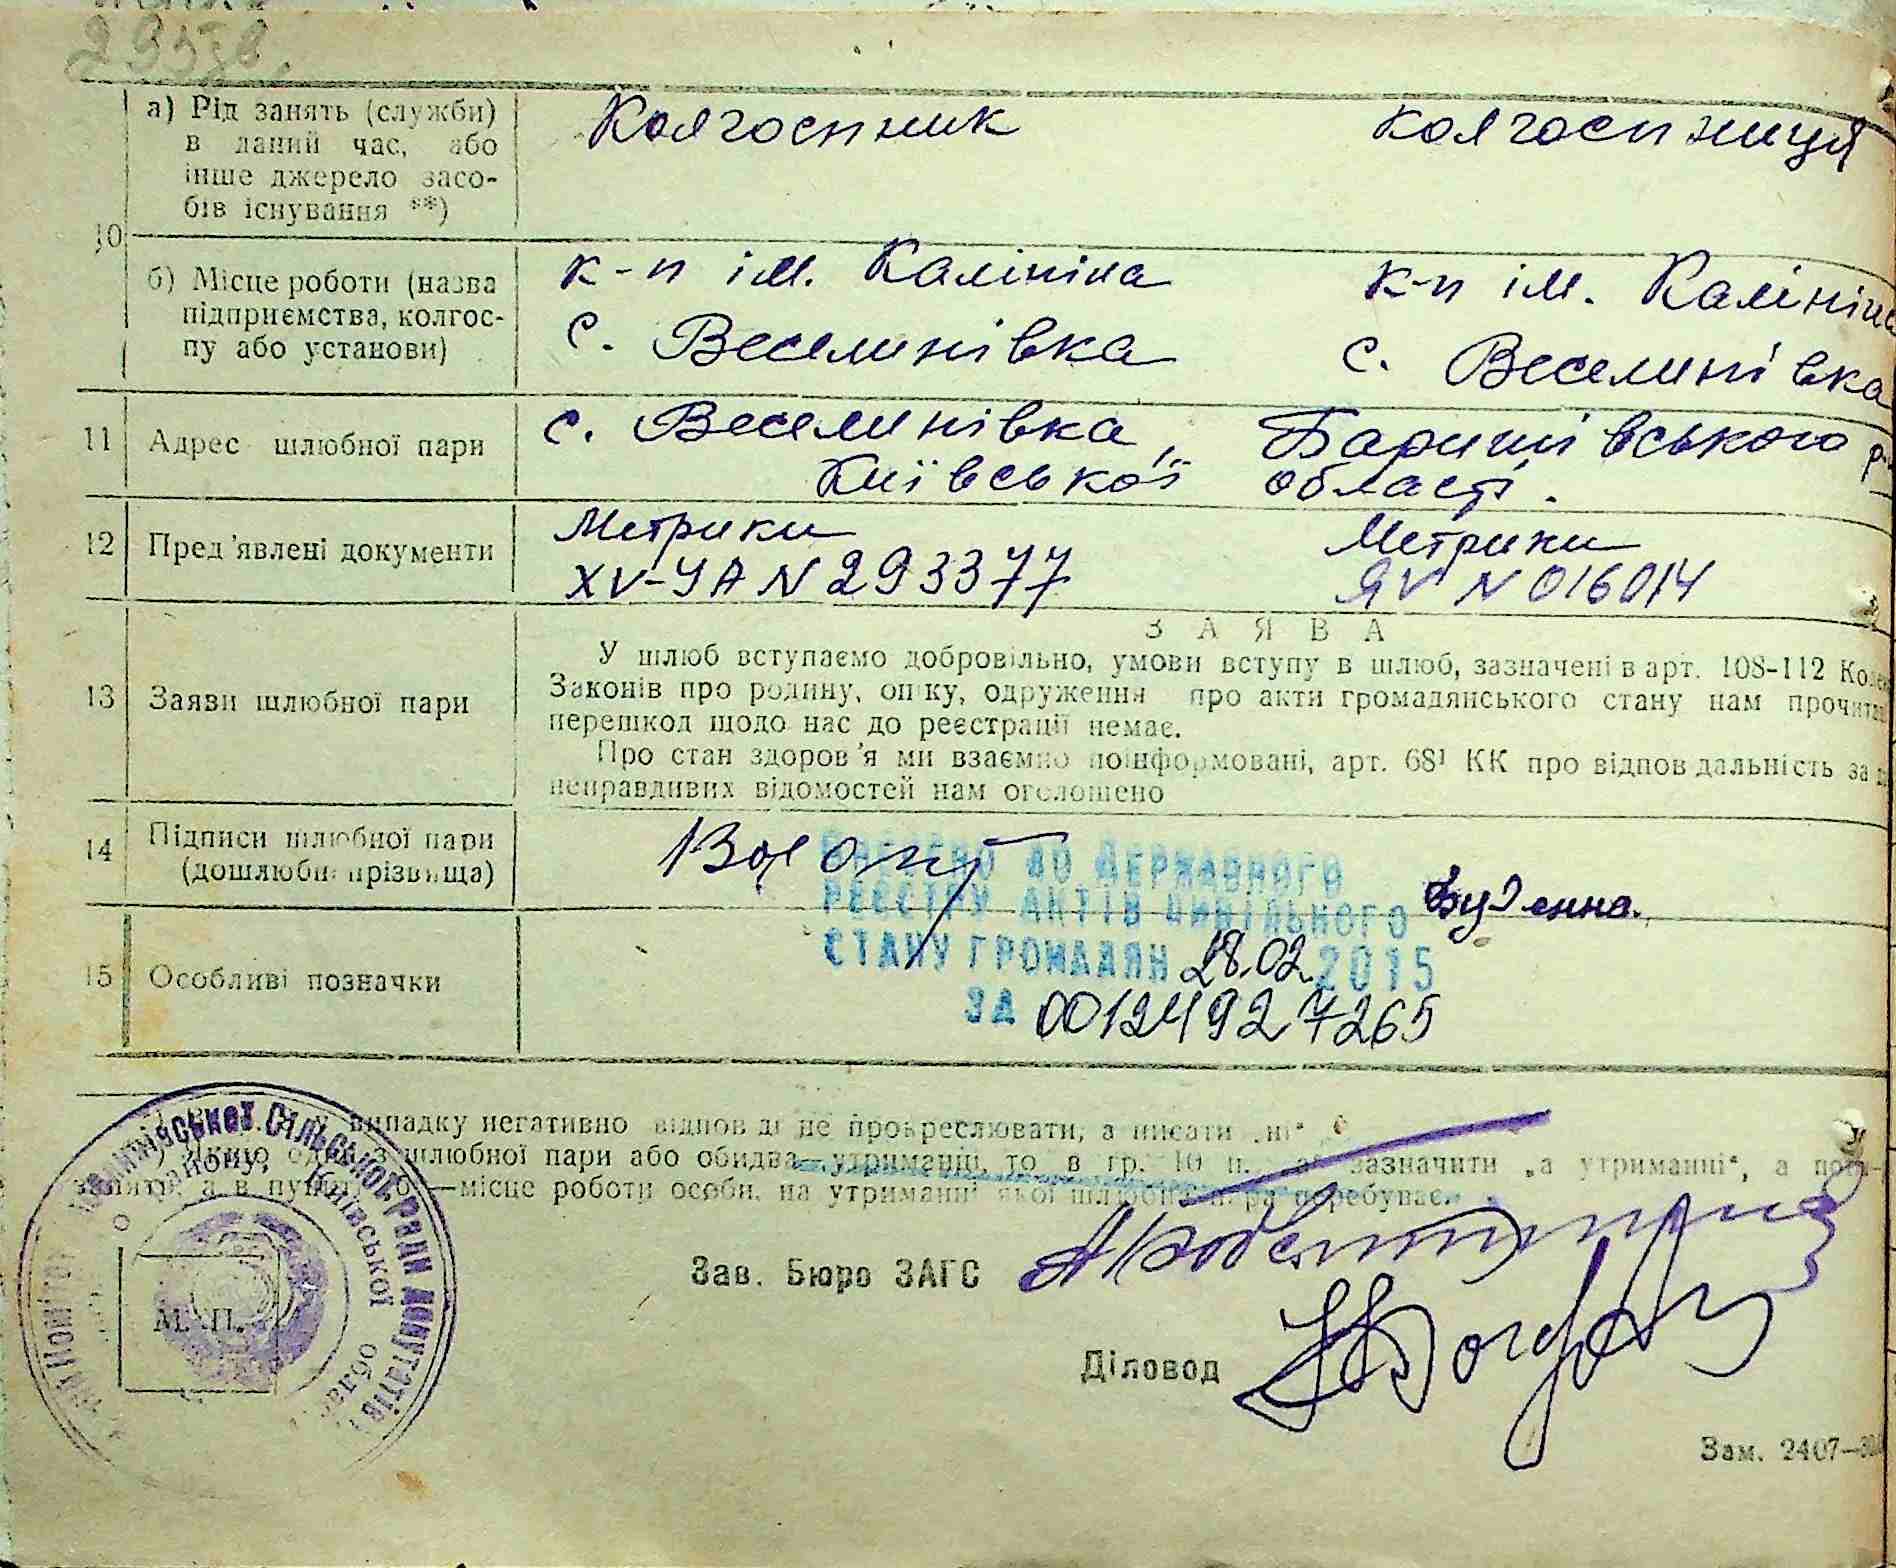 а) Рід занять (служби)
в даний час, або
інше джерело засо-
бів існування **)
Колгоспник колгоспниця
10
б) Місце роботи (назва
підприємства, колгос-
пу або установи)
к-п ім. Калініна к-п ім. Калініна
с. Веселинівка с. Веселинівка
11 Адрес шлюбної пари
с. Веселинівка, Баришівського р-
Київської області.
12 Пред'явлені документи
Метрики Метрики
XV-УА N 293377 ЯV N 016014
ЗАЯВА
13 Заяви шлюбної пари
У шлюб вступаємо добровільно, умови вступу в шлюб, зазначені в арт. 108-112
Законів про родину, опіку, одруження про акти громадянського стану нам
перешкод щодо нас до реєстрації немає.
Про стан здоров'я ми взаємно поінформовані, арт. 68¹ КК про відповідальність за
неправдивих відомостей нам оголошено
14 Підписи шлюбної пари
(дошлюбні прізвища)
Буденна.
ВНЕСЕНО ДО ДЕРЖАВНОГО
РЕЄСТРУ АКТІВ ЦИВІЛЬНОГО
СТАНУ ГРОМАДЯН 28.02.2015
ЗА 00124927265
15 Особливі позначки
випадку негативно відповіді не прокреслювати, а писати „ні"
Якщо один з шлюбної пари або обидва утриманці, то в гр. 10 п. „а" зазначити „а утриманні", а
занять, а в пункті „б"—місце роботи особи, на утриманні якої шлюбна пара перебуває.
Сільської Ради депутатів
району, Київської
М. П.
Зав. Бюро ЗАГС
Діловод
Зам. 2407—